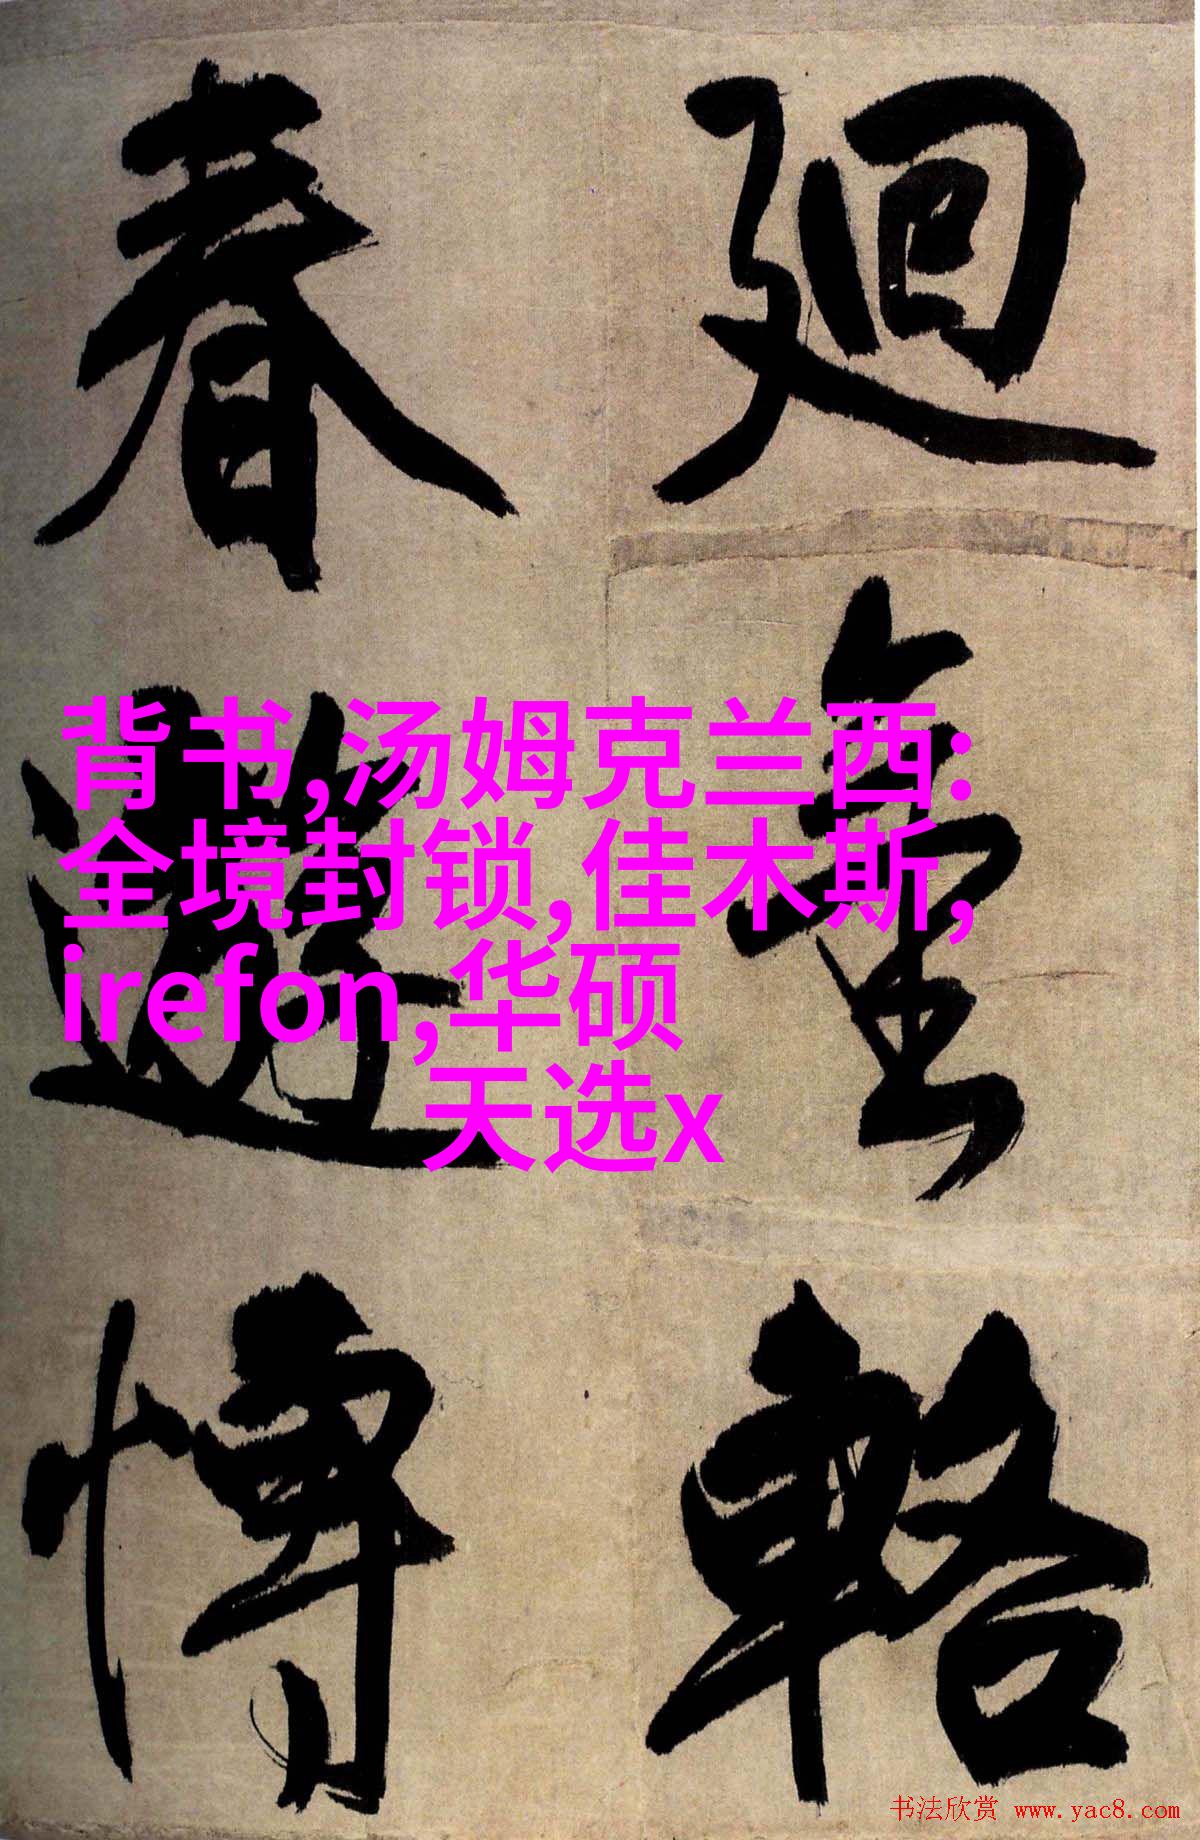 迴鑾輅
春遊博
背书,汤姆克兰西:
全境封锁,佳木斯,
irefon,华硕
天选x
书法欣赏 www.yac8.com